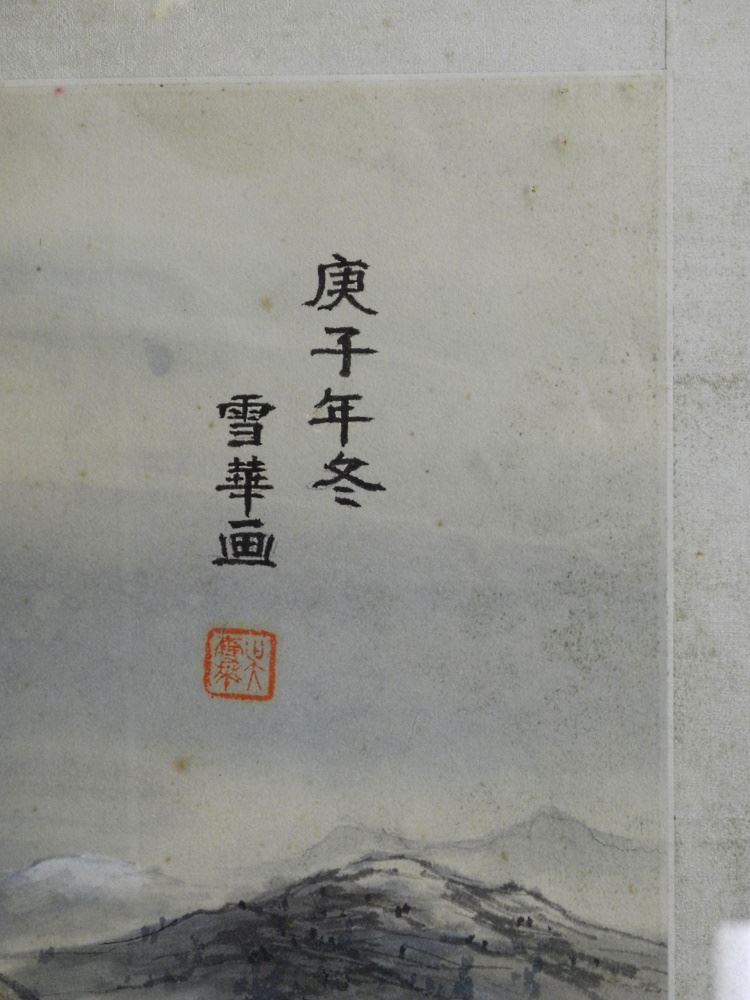 庚子年冬
雪華画